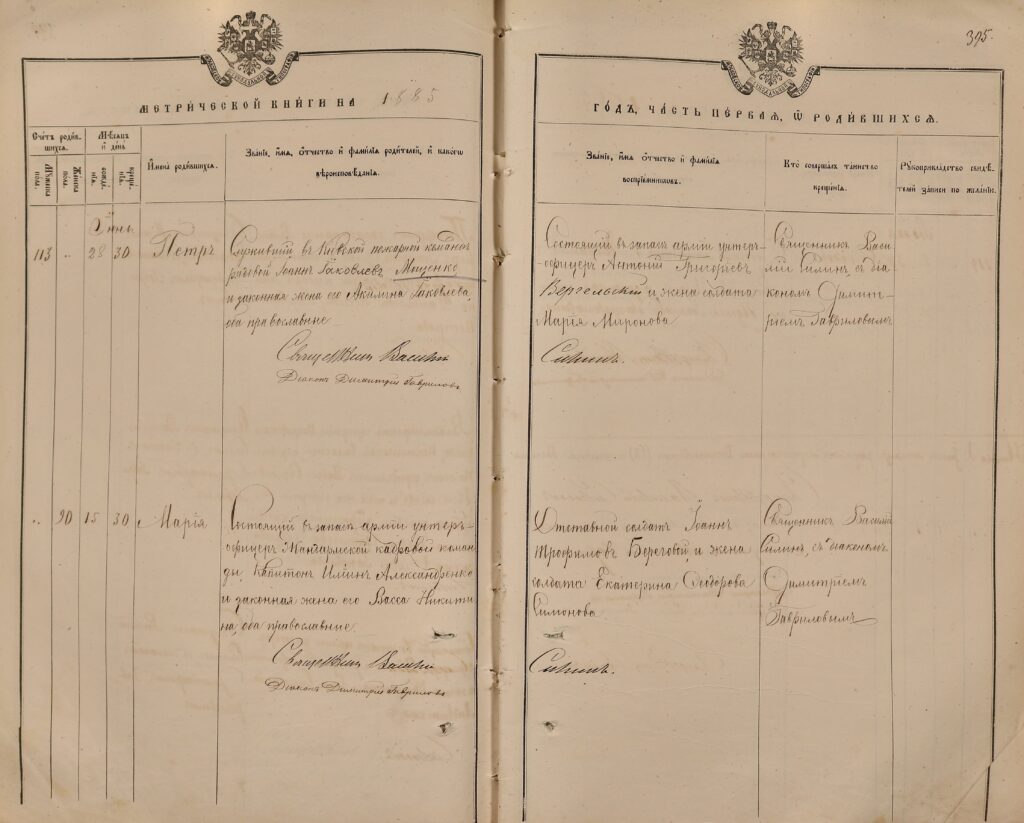 395.
МЕТРИЧЕСКОЙ КНИГИ НА 1885
ГОДЪ, ЧАСТЬ ПЕРВАЯ, Ѿ РОДИВШИХСЯ.
Счетъ родив
шихся.
Мужеска
пол.
Женска
пол.
Мѣсяцъ
и день
рожде
нія.
креще
нія.
Имена родившихся.
Званіе, имя, отчество и фамилія родителей, и какого
вѣроисповѣданія.
Званіе, имя отчество и фамилія
воспріемниковъ.
Кто совершалъ таинство
крещенія.
Рукоприкладство свидѣ
телей записи по желанію.
Іюнь
113 „ 28 30 Петръ
Служившій въ Кіевской пожарной команде
рядовой Іоаннъ Іаковлевъ Мощенко
и законная жена его Акилина Іаковлева,
оба православные
Священникъ Василій
Діаконъ Димитрій Гавриловъ
Состоящій въ запасѣ арміи унтеръ-
офицеръ Антоній Григорьевъ
Вергельскій и жена солдата
Марія Миронова
Силинъ.
Священникъ Васи
лій Силинъ, съ діа
кономъ Димит
ріемъ Гавриловымъ
„ 90 15 30 Марія
Состоящій въ запасѣ арміи унтеръ-
офицеръ Жандармской кадровой коман
ды, Капитонъ Ильинъ Александренко
и законная жена его Васса Никити
на, оба православные
Священникъ Василій
Діаконъ Димитрій Гавриловъ
Отставной солдатъ Іоаннъ
Трофимовъ Береговой, и жена
солдата Екатерина Ѳеодорова
Симонова
Силинъ.
Священникъ Василій
Силинъ, съ діакономъ
Димитріемъ
Гавриловымъ